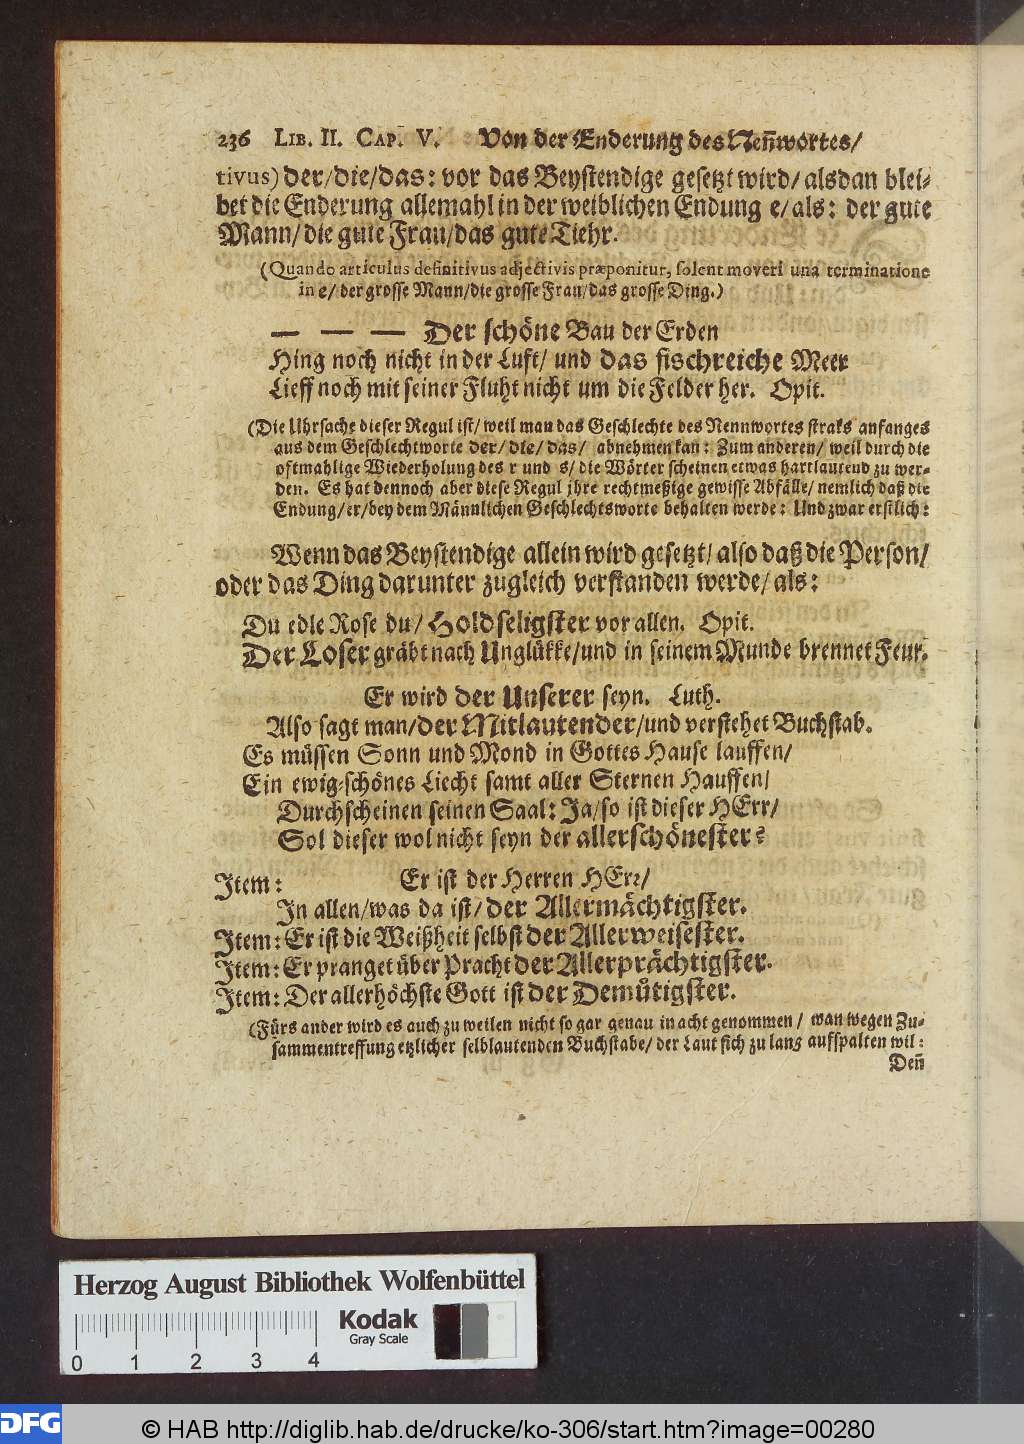 236 LIB. II. CAP. V. Von der Enderung des Neñwortes/
tivus) der/die/das: vor das Beystendige gesetzt wird/ alsdan blei-
bet die Enderung allemahl in der weiblichen Endung e/ als: der gute
Mann/ die gute Frau/das gute Tiehr.
(Quando articulus definitivus adjectivis præponitur, solent moveri una terminatione
in e/ der grosse Mann/die grosse Frau/das grosse Ding.)
— — — Der schöne Bau der Erden
Hing noch nicht in der Luft/ und das fischreiche Meer
Lieff noch mit seiner Fluht nicht um die Felder her. Opit.
(Die Uhrsache dieser Regul ist/ weil man das Geschlechte des Nennwortes straks anfanges
aus dem Geschlechtworte der/ die/ das/ abnehmen kan: Zum anderen/ weil durch die
oftmahlige Wiederholung des r und s/ die Wörter scheinen etwas hartlautend zu wer-
den. Es hat dennoch aber diese Regul jhre rechtmeßige gewisse Abfälle/ nemlich daß die
Endung/er/bey dem Männlichen Geschlechtsworte behalten werde: Und zwar erstlich:
Wenn das Beystendige allein wird gesetzt/ also daß die Person/
oder das Ding darunter zugleich verstanden werde/ als:
Du edle Rose du/ Holdseligster vor allen. Opit.
Der Loser gräbt nach Unglükke/und in seinem Munde brennet Feur.
Er wird der Unserer seyn. Luth.
Also sagt man/der Mitlautender/und verstehet Buchstab.
Es müssen Sonn und Mond in Gottes Hause lauffen/
Ein ewig-schönes Liecht samt aller Sternen Hauffen/
Durchscheinen seinen Saal: Ja/so ist dieser HErr/
Sol dieser wol nicht seyn der allerschönester?
Item: Er ist der Herren HErr/
In allen/was da ist/ der Allermächtigster.
Item: Er ist die Weißheit selbst der Allerweisester.
Item: Er pranget über Pracht der Allerprächtigster.
Item: Der allerhöchste Gott ist der Demütigster.
(Fürs ander wird es auch zu weilen nicht so gar genau in acht genommen/ wan wegen Zu-
sammentreffung etzlicher selblautenden Buchstabe/ der Laut sich zu lang aufspalten wil:
Deñ
Herzog August Bibliothek Wolfenbüttel
Kodak
Gray Scale
0 1 2 3 4
DFG © HAB http://diglib.hab.de/drucke/ko-306/start.htm?image=00280